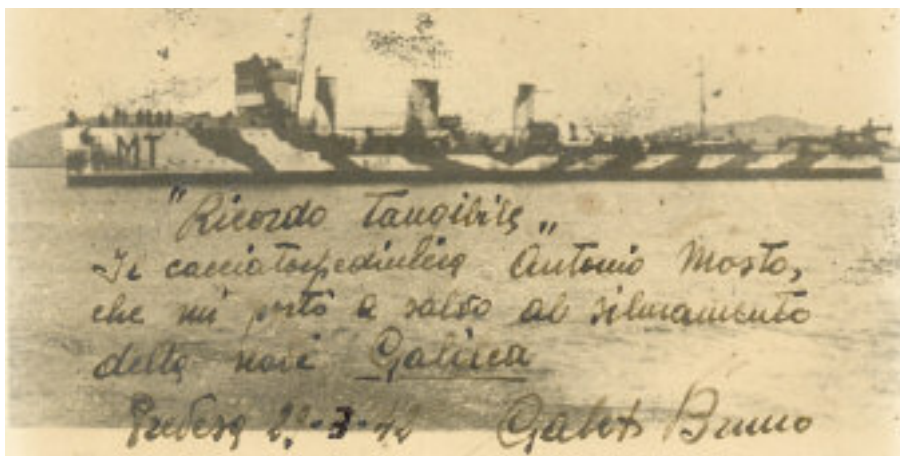 MT
"Ricordo Tangibile"
Il cacciatorpediniera Antonio Mosto,
che mi portò a salvo al siluramento
della navi Galilea
Prevesa 29-3-42 Bruno